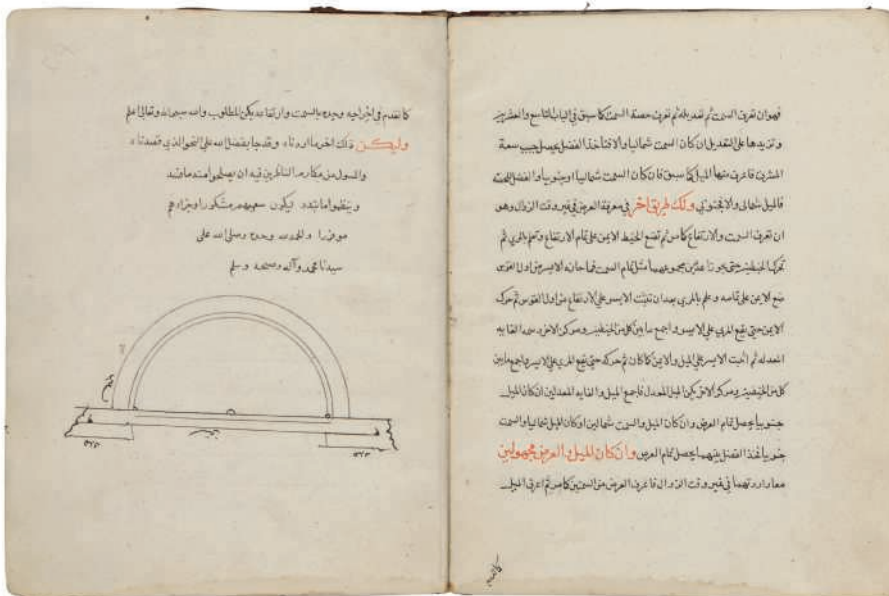 فهو ان تعرف السمت ثم تعديله ثم تعرف حصة السمت كما سبق في الباب التاسع والعشرين
وتزيدها على التعديل ان كان السمت شماليا والا فتاخذ الفضل يحصل جيب سعة
المشرق فاعرف منها الميل كما سبق فان كان السمت شماليا او جنوبيا والفضل للحصة
فالميل شمالي والا فجنوبي ولك طريق اخر في معرفة العرض في غير وقت الزوال وهو
ان تعرف السمت والارتفاع كما مر ثم تضع الخيط الايمن على تمام الارتفاع وتعلم بالمري ثم
تحرك الخيطين حتى يحوزا عن مجموعهما مثل تمام السمت فما حازه الايسر من اول القوس
ضع الايمن على تمامه وعلم بالمري بعد ان تثبت الايسر على الارتفاع من اول القوس ثم حرك
الايمن حتى يقع المري على الايسر واجمع ما بين كل من الخيطين ومركز الاخر وسمه الغايه
المعدله ثم اثبت الايسر على الميل والايمن كما كان ثم حركه حتى يقع المري على الايسر واجمع ما بين
كل من الخيطين ومركز الاخر يكن الميل المعدل فاجمع الميل والغايه المعدلين ان كان الميل
جنوبيا يحصل تمام العرض وان كان الميل والسمت شماليين او كان الميل شماليا والسمت
جنوبيا فخذ الفضل بينهما يحصل تمام العرض وان كان الميل والعرض مجهولين
معا واردتهما في غير وقت الزوال فاعرف العرض من السمتين كما مر ثم اعرف الميل
كما تقدم
كما تقدم في اخراجه وحده بالسمت وارتفاعه يكن المطلوب والله سبحانه وتعالى اعلم
وليكن ذلك اخر ما اردناه وقد جا بفضل الله على النحو الذي قصدناه
والمسول من مكارم الناظرين فيه ان يصلحوا منه ما فسد
وينظموا ما تبدد ليكون سعيهم مشكورا وجزاوهم
موفورا والحمد لله وحده وصلى الله على
سيدنا محمد وآله وصحبه وسلم